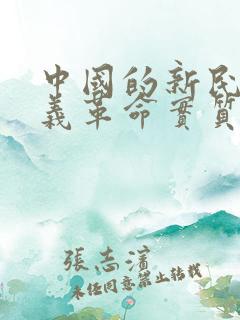 中國的新民
義革命實質
張志濱
未經同意禁止轉載